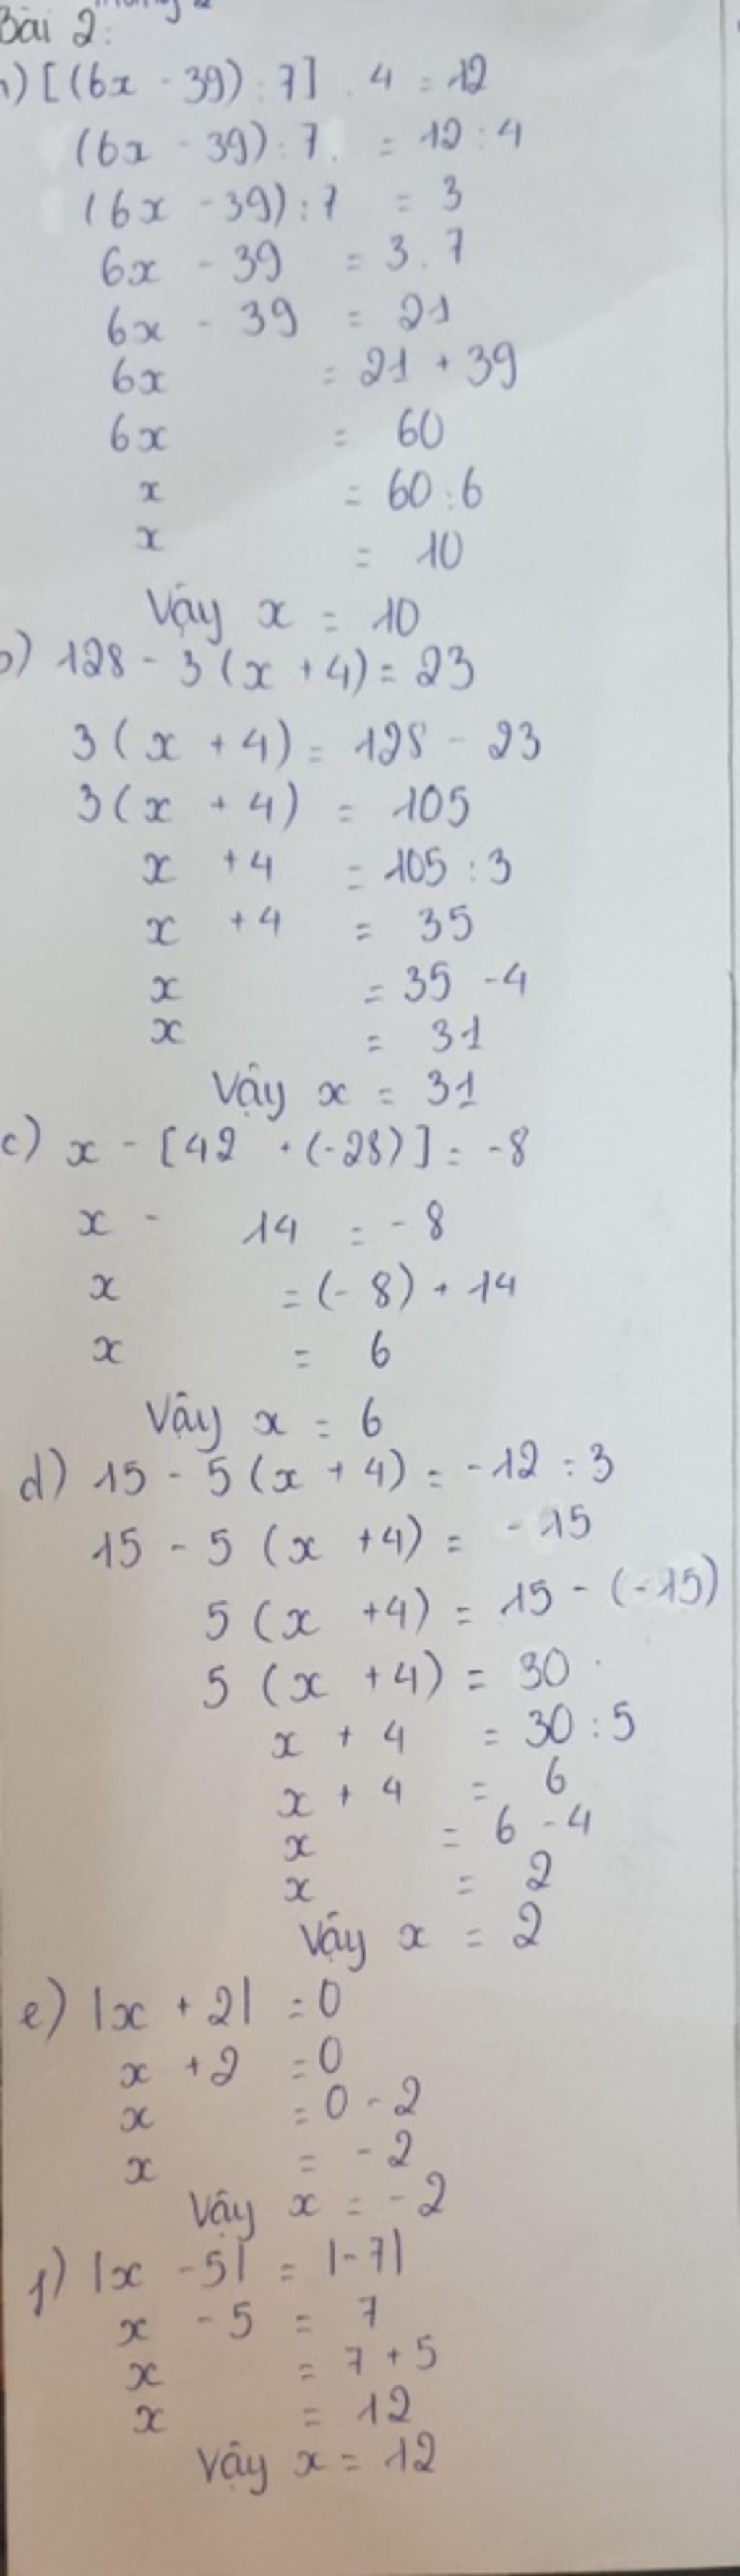 Bài 2:
a) [(6x - 39) : 7] . 4 = 12
(6x - 39) : 7 = 12 : 4
(6x - 39) : 7 = 3
6x - 39 = 3 . 7
6x - 39 = 21
6x = 21 + 39
6x = 60
x = 60 : 6
x = 10
Vậy x = 10
b) 128 - 3 (x + 4) = 23
3 (x + 4) = 128 - 23
3 (x + 4) = 105
x + 4 = 105 : 3
x + 4 = 35
x = 35 - 4
x = 31
Vậy x = 31
c) x - [42 + (-28)] = -8
x - 14 = - 8
x = (- 8) + 14
x = 6
Vậy x = 6
d) 15 - 5 (x + 4) = -12 : 3
15 - 5 (x + 4) = - 15
5 (x + 4) = 15 - (-15)
5 (x + 4) = 30
x + 4 = 30 : 5
x + 4 = 6
x = 6 - 4
x = 2
Vậy x = 2
e) |x + 2| = 0
x + 2 = 0
x = 0 - 2
x = - 2
Vậy x = - 2
f) |x - 5| = |-7|
x - 5 = 7
x = 7 + 5
x = 12
Vậy x = 12